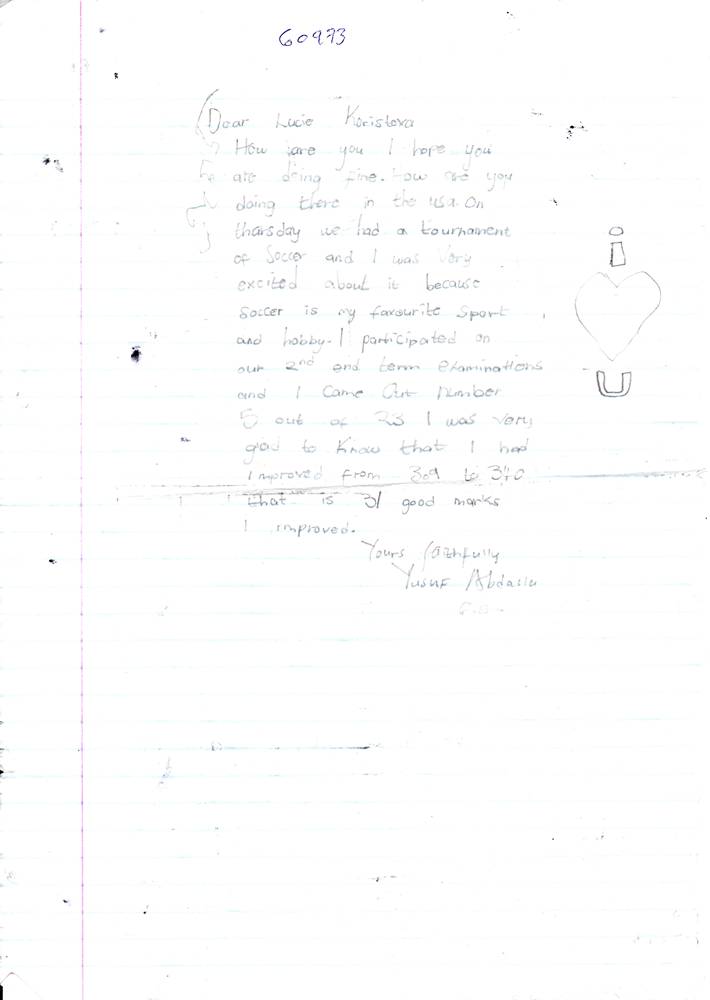 60973
Dear Lucie Koristova
How are you I hope you
are doing fine. How are you
doing there in the usa. On
thursday we had a tournament
of Soccer and I was Very
excited about it because
Soccer is my favourite Sport
and hobby. I participated on
our 2nd end term examinations
and I Came Out number
5 out of 23 I was very
glad to Know that I had
improved from 309 to 340
that is 31 good marks
I improved.
Yours faithfully
Yusuf
i
U